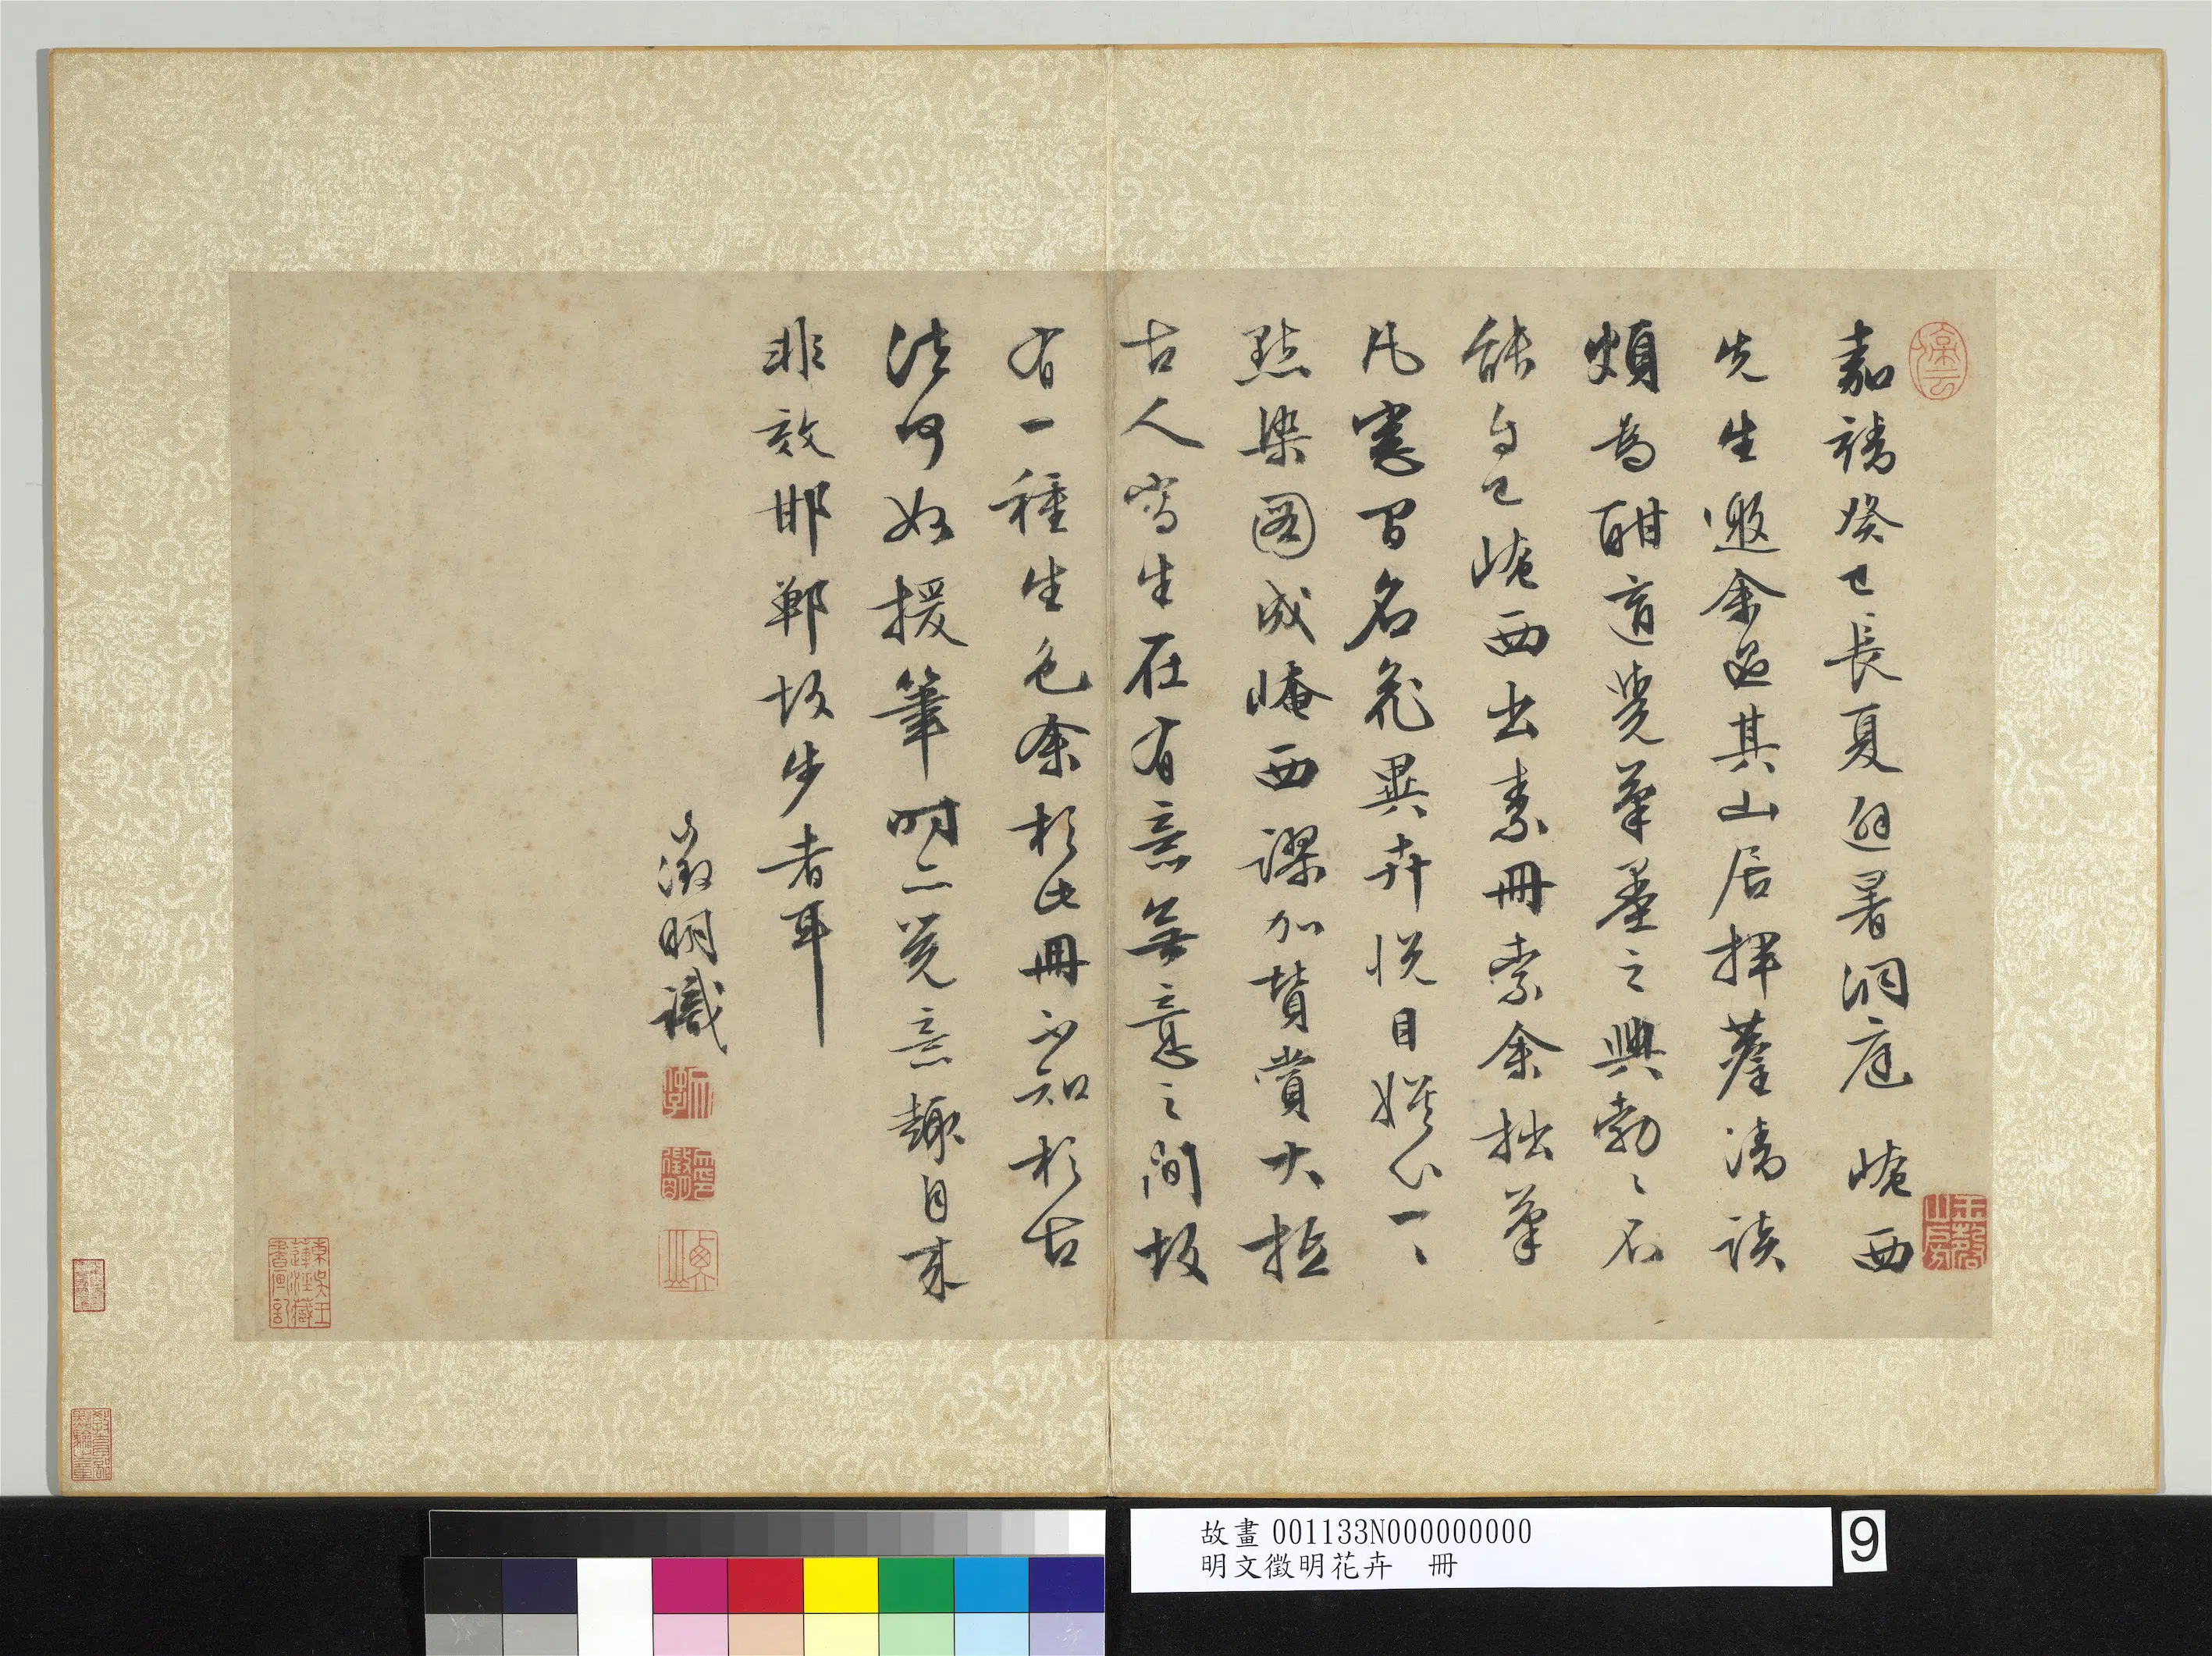 嘉靖癸巳長夏避暑洞庭崦西
先生邀余過其山居揮麈清談
頗為酣適覺筆墨之興勃〻不
能自已崦西出素冊索余拙筆
凡窗間名花異卉悅目娛心一〻
點染圖成崦西謬加贊賞大抵
古人寫生在有意無意之間故
有一種生色余於此冊不知於古
法何如援筆時亦覺意趣自來
非效邯鄲故步者耳
徵明識
故畫 001133N000000000
明文徵明花卉 冊
9
玉磬山房